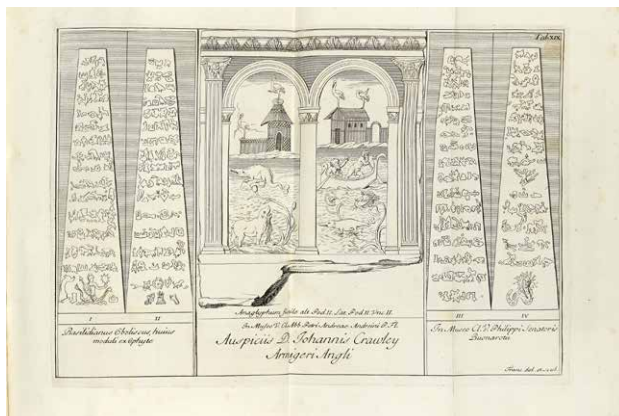 Tab. XIX.
I II
Basilidianus Obeliscus, huius
moduli ex Gypso
Anaglyphum fictile alt. Ped. II. Lat. Ped. II. Unc. II.
In Museo V. Cl. Abb. Petri Andreae Andreini P. Fl.
Auspiciis D. Johannis Crawley
Armigeri Angli
III IV
In Museo Cl. V. Philippi Senatoris
Buonarotii
Franc. del. et scul.